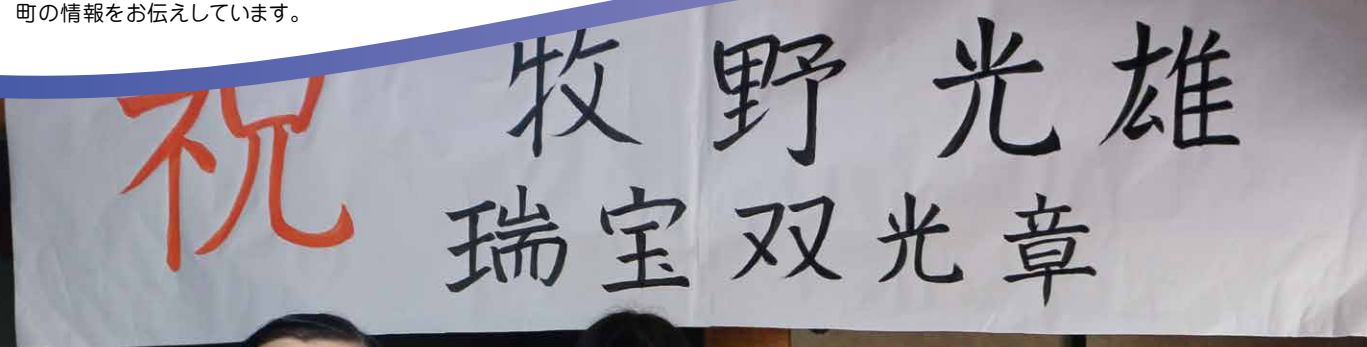 町の情報をお伝えしています。
祝
牧野光雄
瑞宝双光章